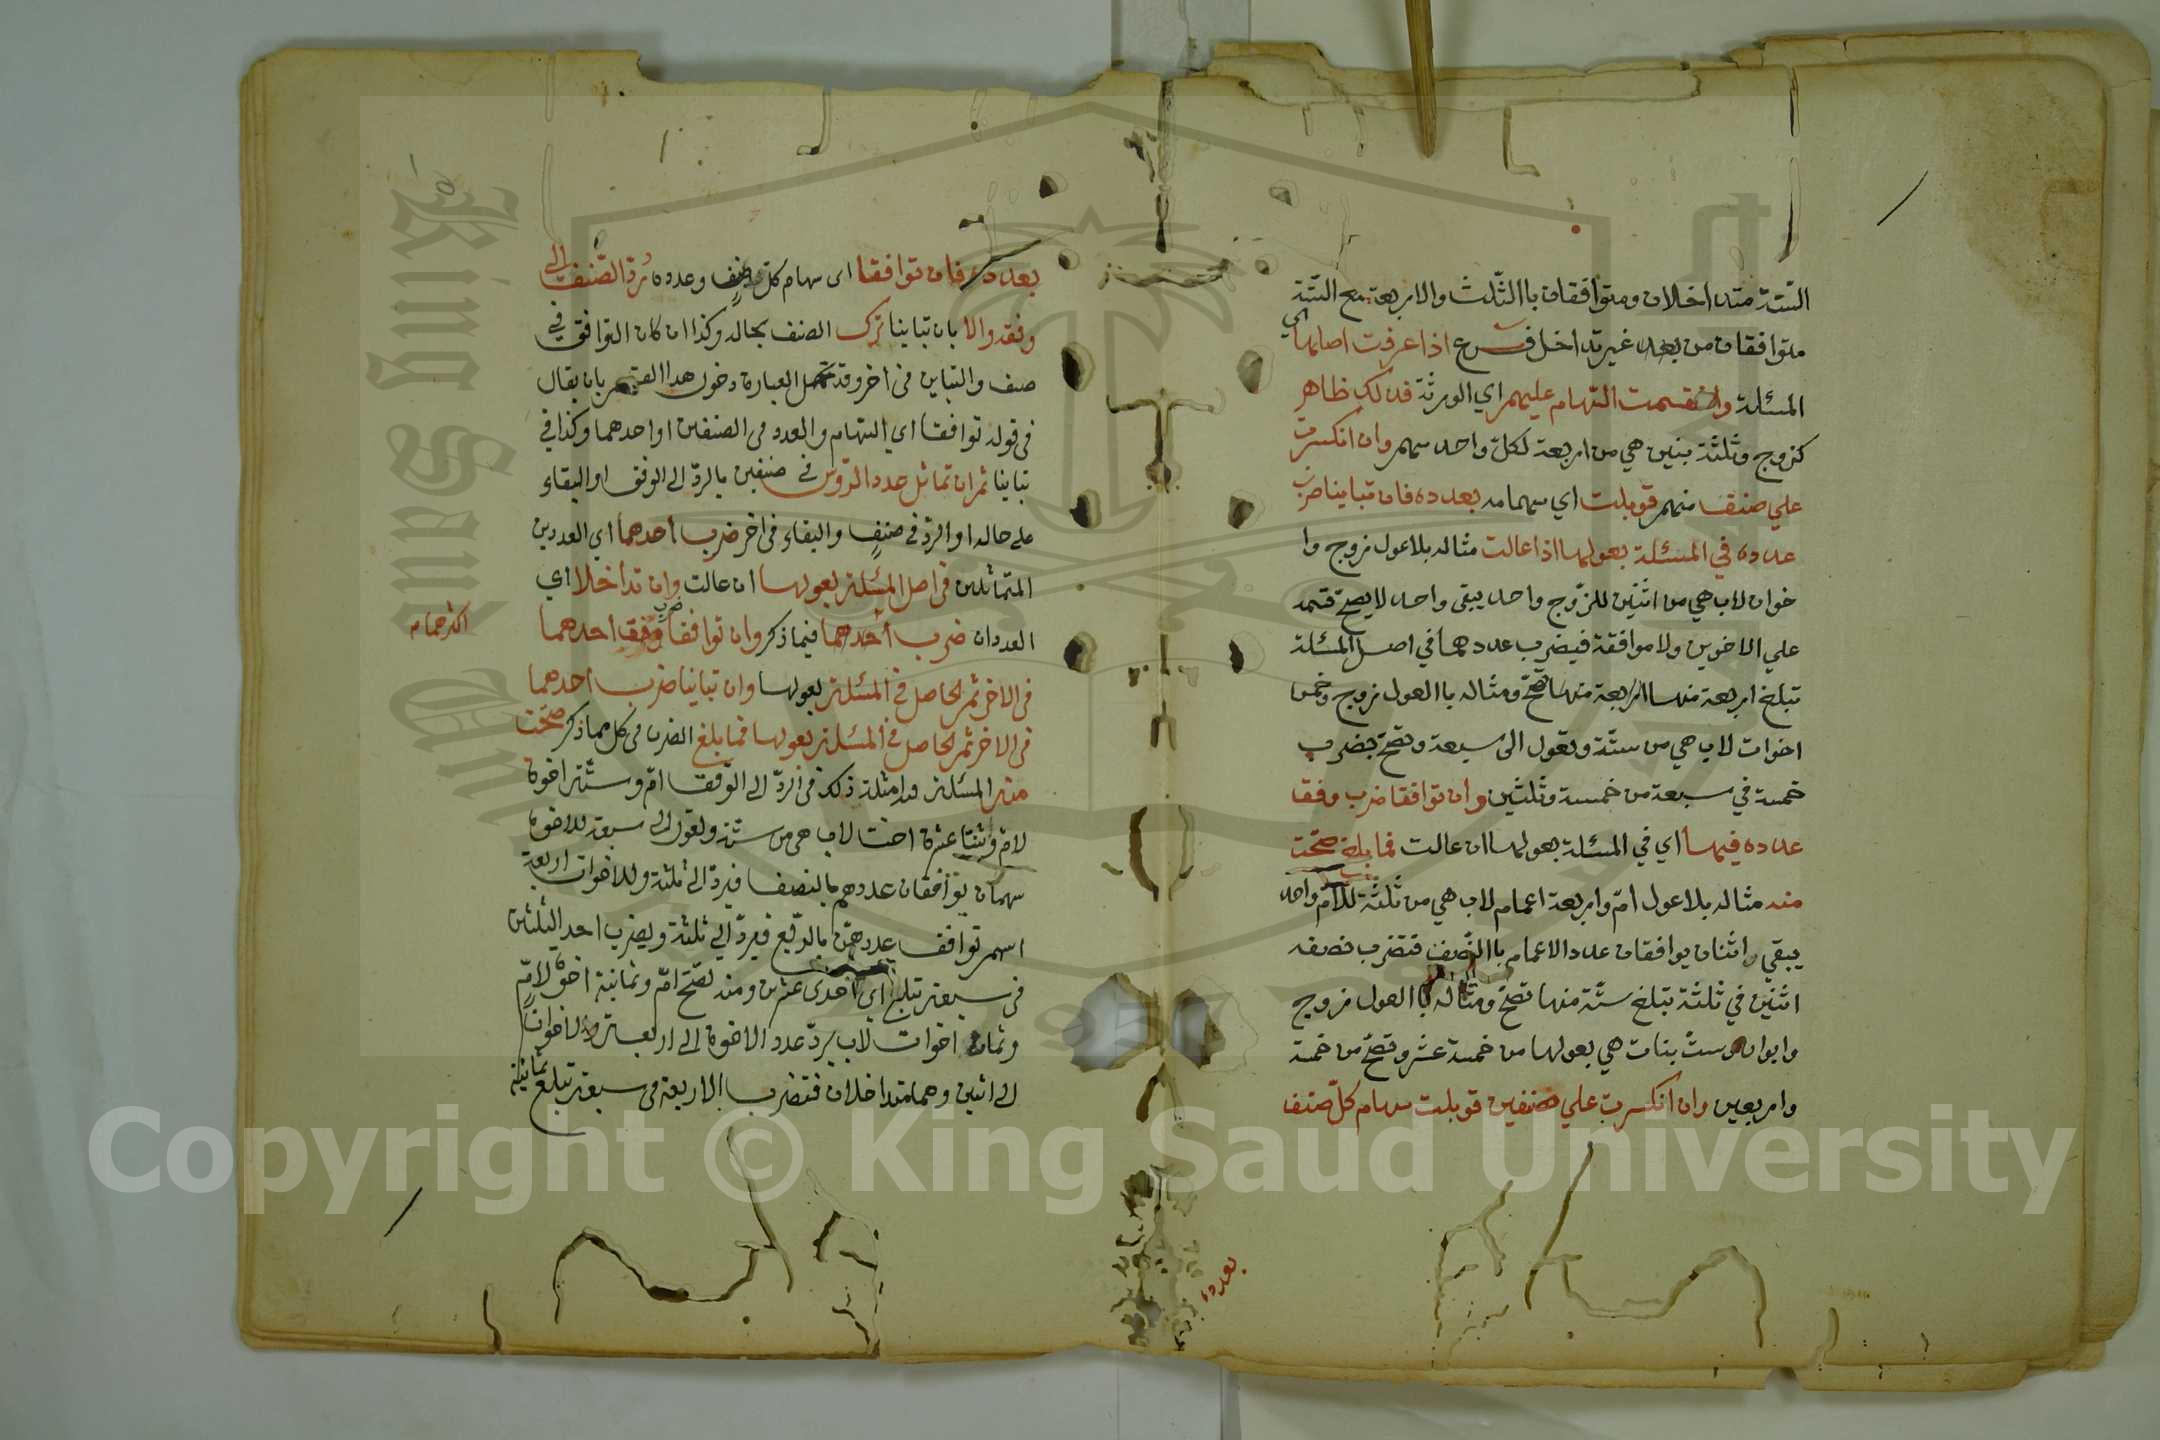 الستة متداخلان ومتوافقان باالثلث والاربعة مع الستة
متوافقان من غير تداخل فرع اذا عرفت اصلها اي
المسئلة وانقسمت السهام عليهم اي الورثة فذلك ظاهر
كزوج وثلثة بنين هي من اربعة لكل واحد سهم وان انكسرت
علي صنف منهم قوبلت اي سهامه بعدده فان تباينا ضرب
عدده في المسئلة بعولها اذا عالت مثاله بلا عول زوج وا
خوان لاب هي من اثنين للزوج واحد يبقى واحد لا يصح قسمه
علي الاخوين ولا موافقة فيضرب عددهما في اصل المسئلة
تبلغ اربعة منها تصح ومثاله باالعول زوج وخمس
اخوات لاب هي من ستة وتعول الى سبعة وتصح بضرب
خمسة في سبعة من خمسة وثلثين وان توافقا ضرب وفق
عدده فيها اي في المسئلة بعولها ان عالت فما بلغ صحت
منه مثاله بلا عول ام واربعة اعمام لاب هي من ثلثة للام واحد
يبقي اثنان يوافقان عدد الاعمام باالنصف فتضرب نصفه
اثنين في ثلثة تبلغ ستة منها تصح ومثاله باالعول زوج
وابوان وست بنات هي بعولها من خمسة عشر وتصح من خمسة
واربعين وان انكسرت علي صنفين قوبلت سهام كل صنف
بعدده
بعدده فان توافقا اى سهام كل صنف وعدده رد الصنف الى
وفقه والا بان تباينا ترك الصنف بحاله وكذا ان كان التوافق في
صنف والتباين فى اخر وقد تحمل العبارة دخول هذا القسم بان يقال
فى قوله توافقا اي السهام والعدد فى الصنفين او احدهما وكذا في
تباينا ثم ان تماثل عدد الرؤس في صنفين بالرد الى الوفق او البقاء
على حاله او الرد في صنف والبقاء فى اخر ضرب احدهما اي العددين
المتماثلين فى اصل المسئلة بعولها ان عالت وان تداخلا اي
العددان ضرب احدهما فيما ذكر وان توافقا ضرب وفق احدهما
اكثرهما م
فى الاخر ثم الحاصل في المسئلة بعولها وان تباينا ضرب احدهما
فى الاخر ثم الحاصل في المسئلة بعولها فما بلغ الضرب فى كل مما ذكر صحت
منه المسئلة وامثلة ذلك فى الرد الى الوفق ام وستة اخوة
لام وثنتا عشرة اختا لاب هى من ستة وتعول الى سبعة للاخوة
سهمان يوافقان عددهم بالنصف فيرد الى ثلثة وللاخوات اربعة
اسهم توافق عددهن بالربع فيرد الى ثلثة ويضرب احد الثلثين
فى سبعة تبلغ احدى عشرين ومنه تصح ام وثمانية اخوة لام
وثمان اخوات لاب يرد عدد الاخوة الى اربعة والاخوات
الى اثنين وهما متداخلان فتضرب الاربعة فى سبعة تبلغ ثمانية
King Saud University
Copyright © King Saud University